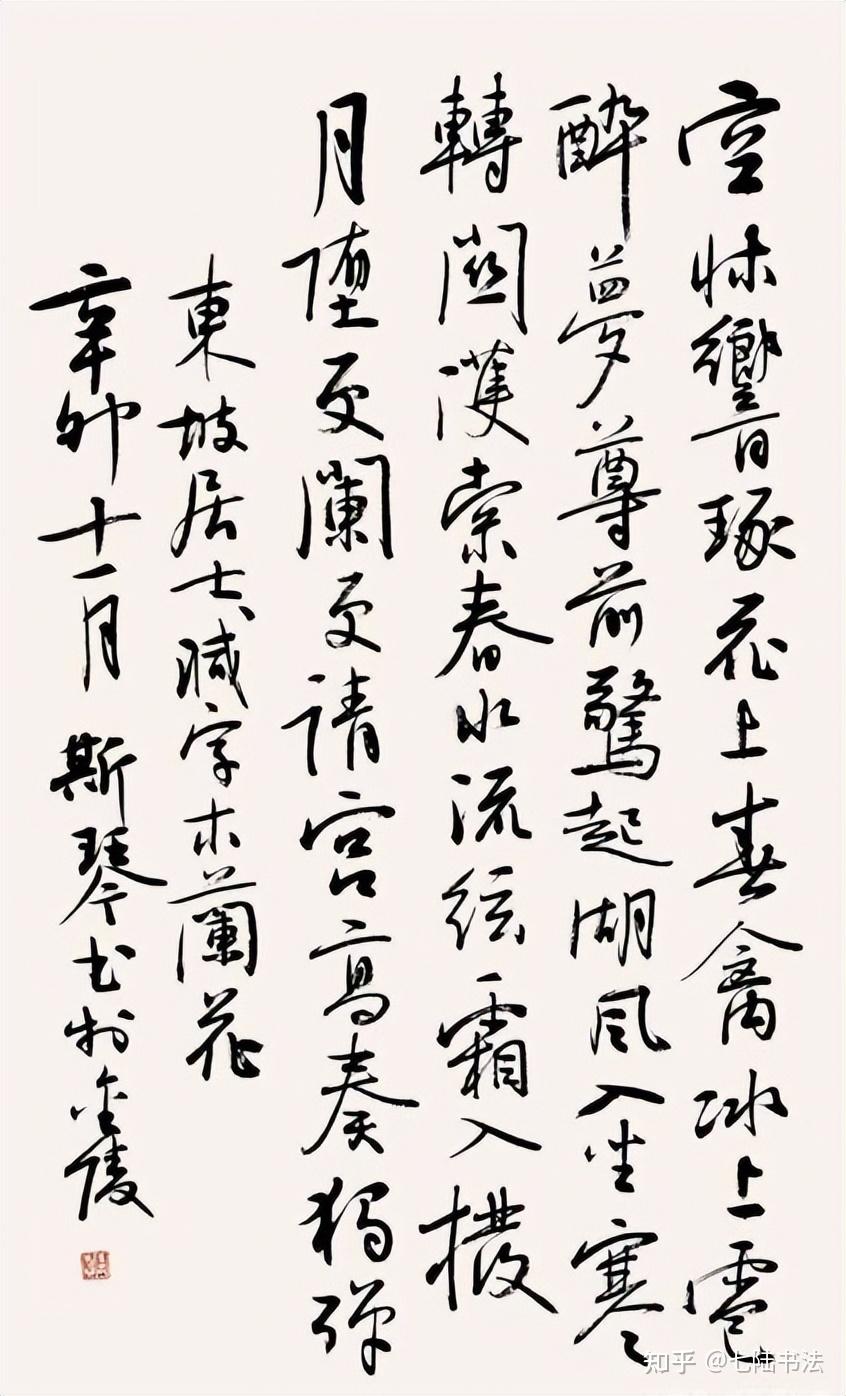 空牀響琢花上春禽冰上雹
醉夢尊前驚起湖風入坐寒
轉關濩索春水流絃霜入撥
月墮更闌更請宮高奏獨彈
東坡居士減字木蘭花
辛卯十一月 斯琴书於金陵
知乎 @七陆书法